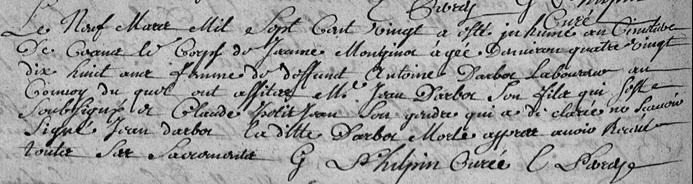 Le Neuf Mars Mil Sept Cent Vingt a esté inhumé au Cimetiere
De le Corps de Jeanne Monginot agée Denviron quatre Vingt
dix huit ans femme de deffunt Antoine Darbot Laboureur au
Convoy du quel ont assisté Me Jean Darbot Son fils qui sest
Soubsigné et Claude petit Jean Son gendre qui a di clarée ne Scavoir
Signé Jean darbot La ditte Darbot Morte apprez avoir Receut
toute Ses Sacrements G Phlpin Curée